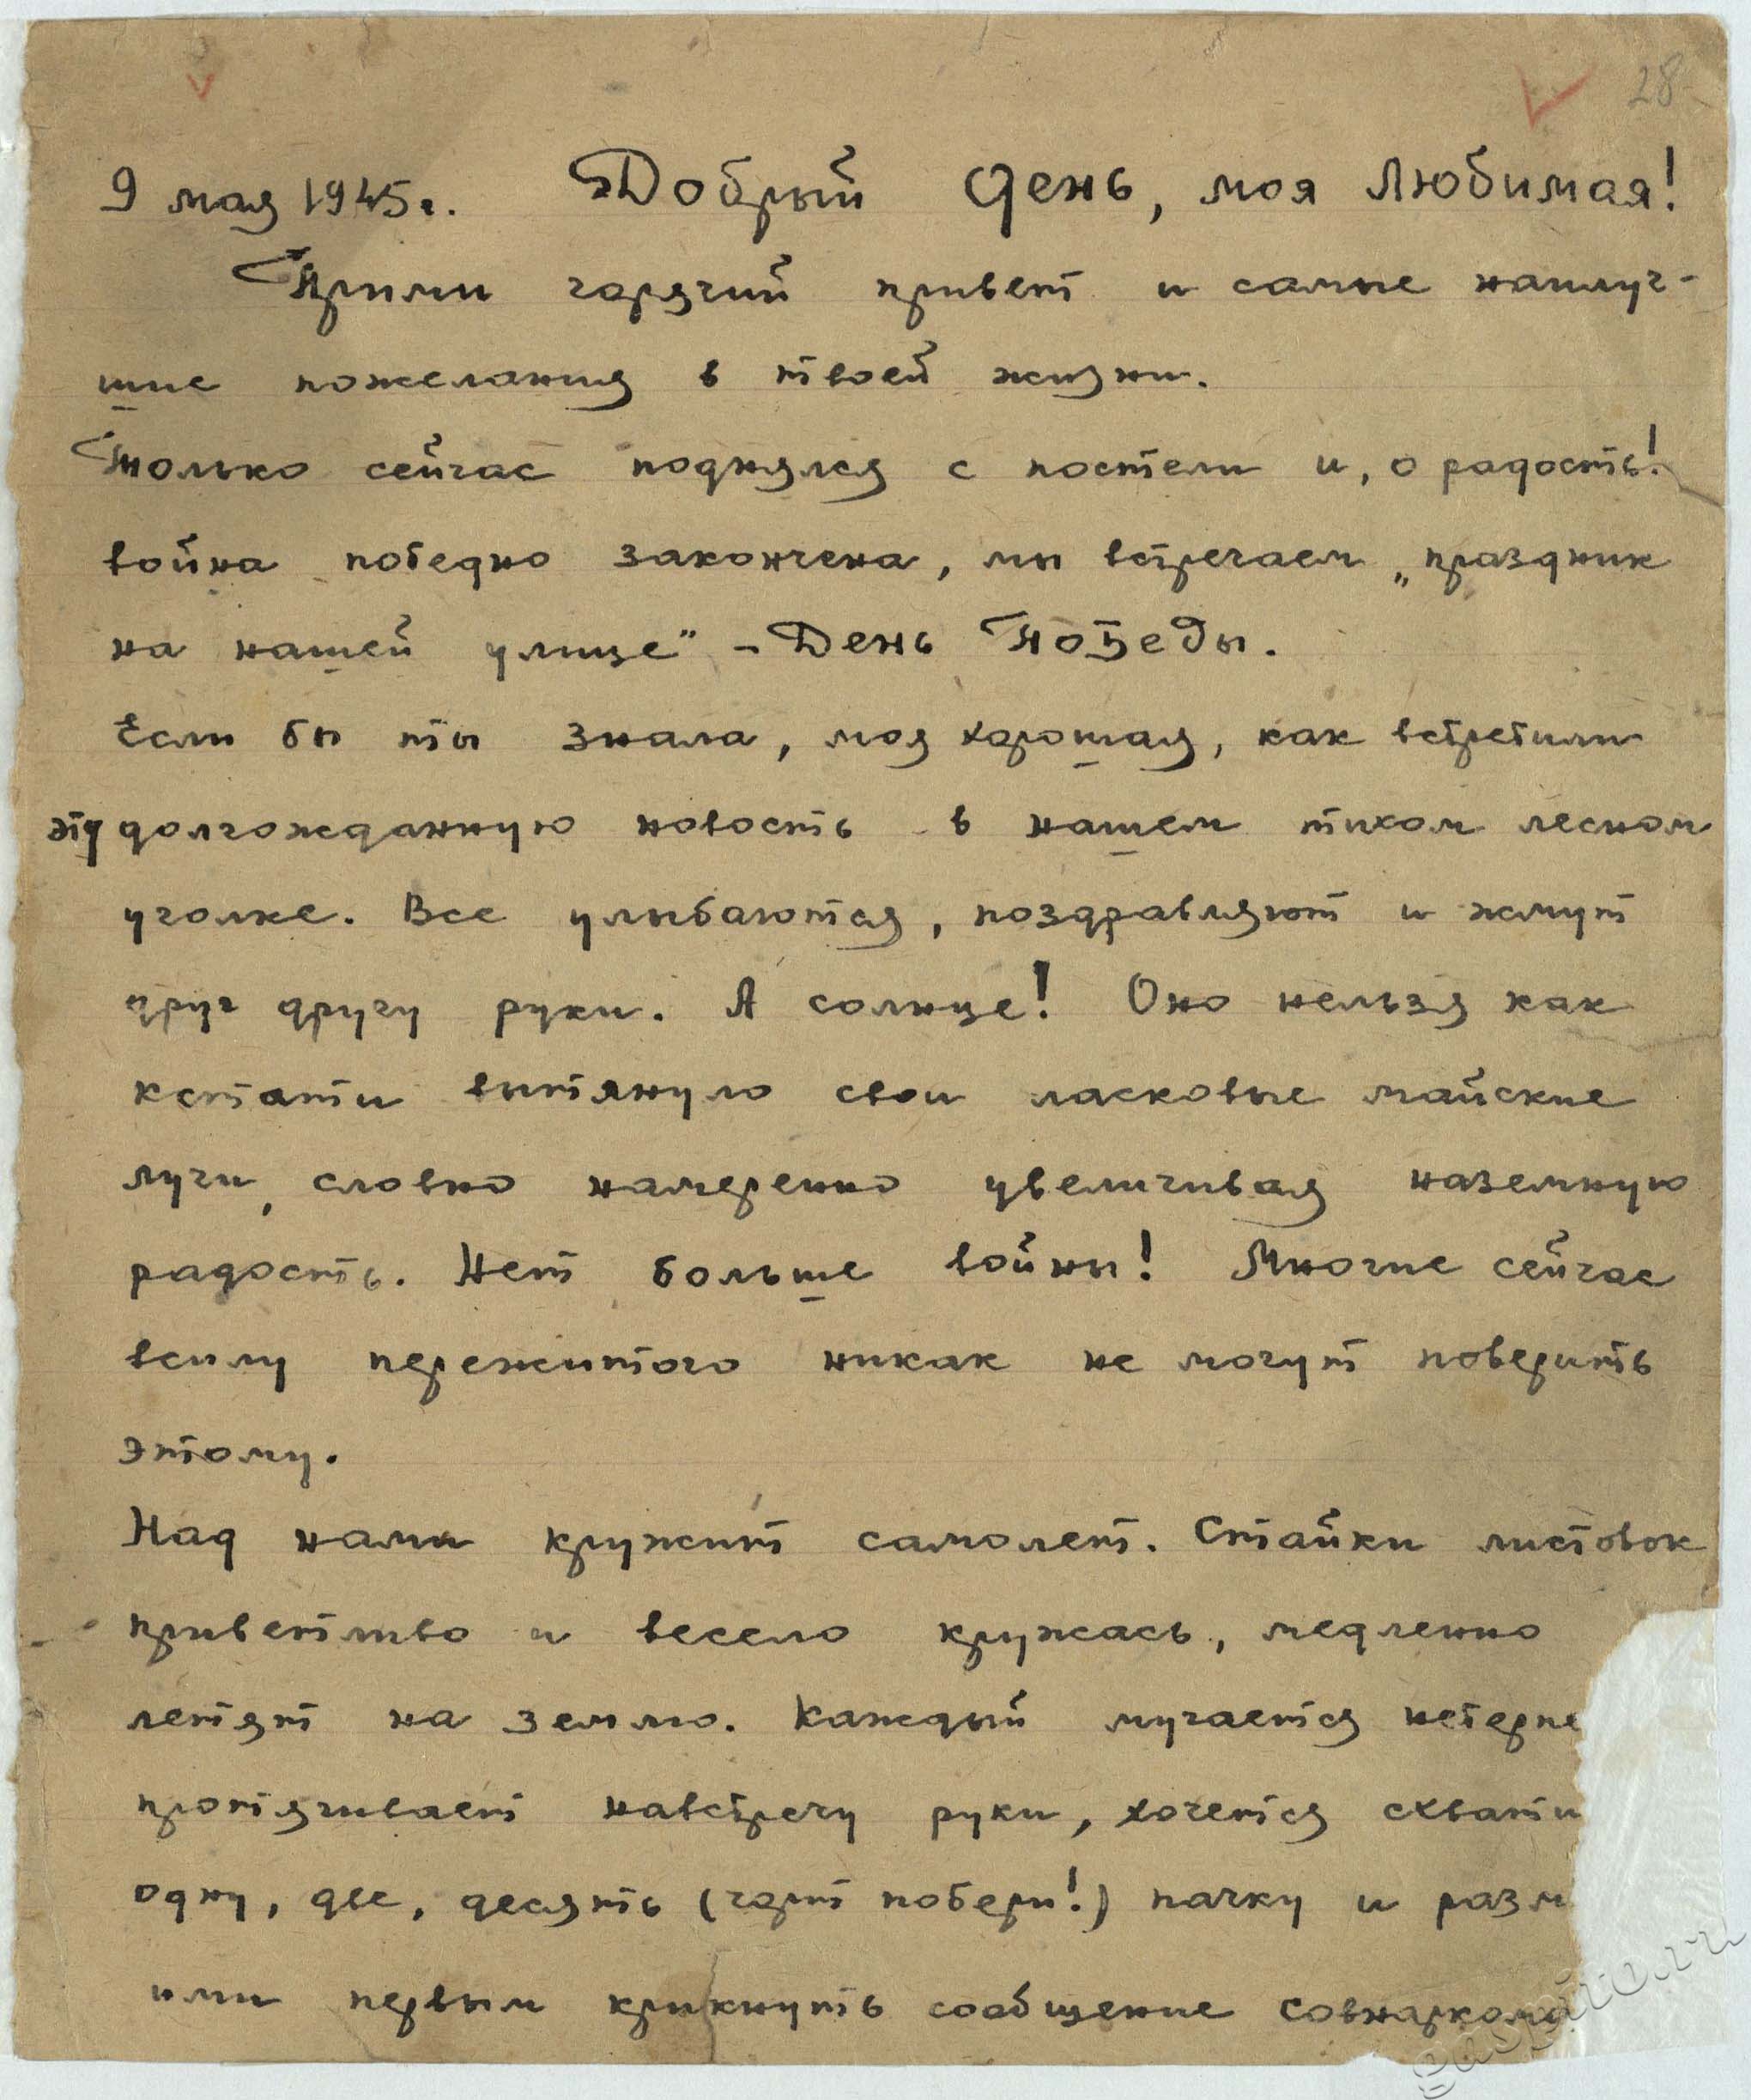 28
9 мая 1945г. Добрый день, моя Любимая!
Прими горячий привет и самые наилуч-
шие пожелания в твоей жизни.
Только сейчас поднялся с постели и, о радость!
война победно закончена, мы встречаем „праздник
на нашей улице" - День Победы.
Если бы ты знала, моя хорошая, как встретили
эту долгожданную новость в нашем тихом лесном
уголке. Все улыбаются, поздравляют и жмут
друг другу руки. А солнце! Оно нельзя как
кстати вытянуло свои ласковые майские
лучи, словно намеренно увеличивая наземную
радость. Нет больше войны! Многие сейчас
всилу пережитого никак не могут поверить
этому.
Над нами кружит самолет. Стайки листовок
приветливо и весело кружась, медленно
летят на землю. Каждый мучается нетерпе
протягивает навстречу руки, хочется схвати
одну, две, десять (чорт побери!) пачку и разм
или первым крикнуть сообщение Совнаркома
gaspito.ru